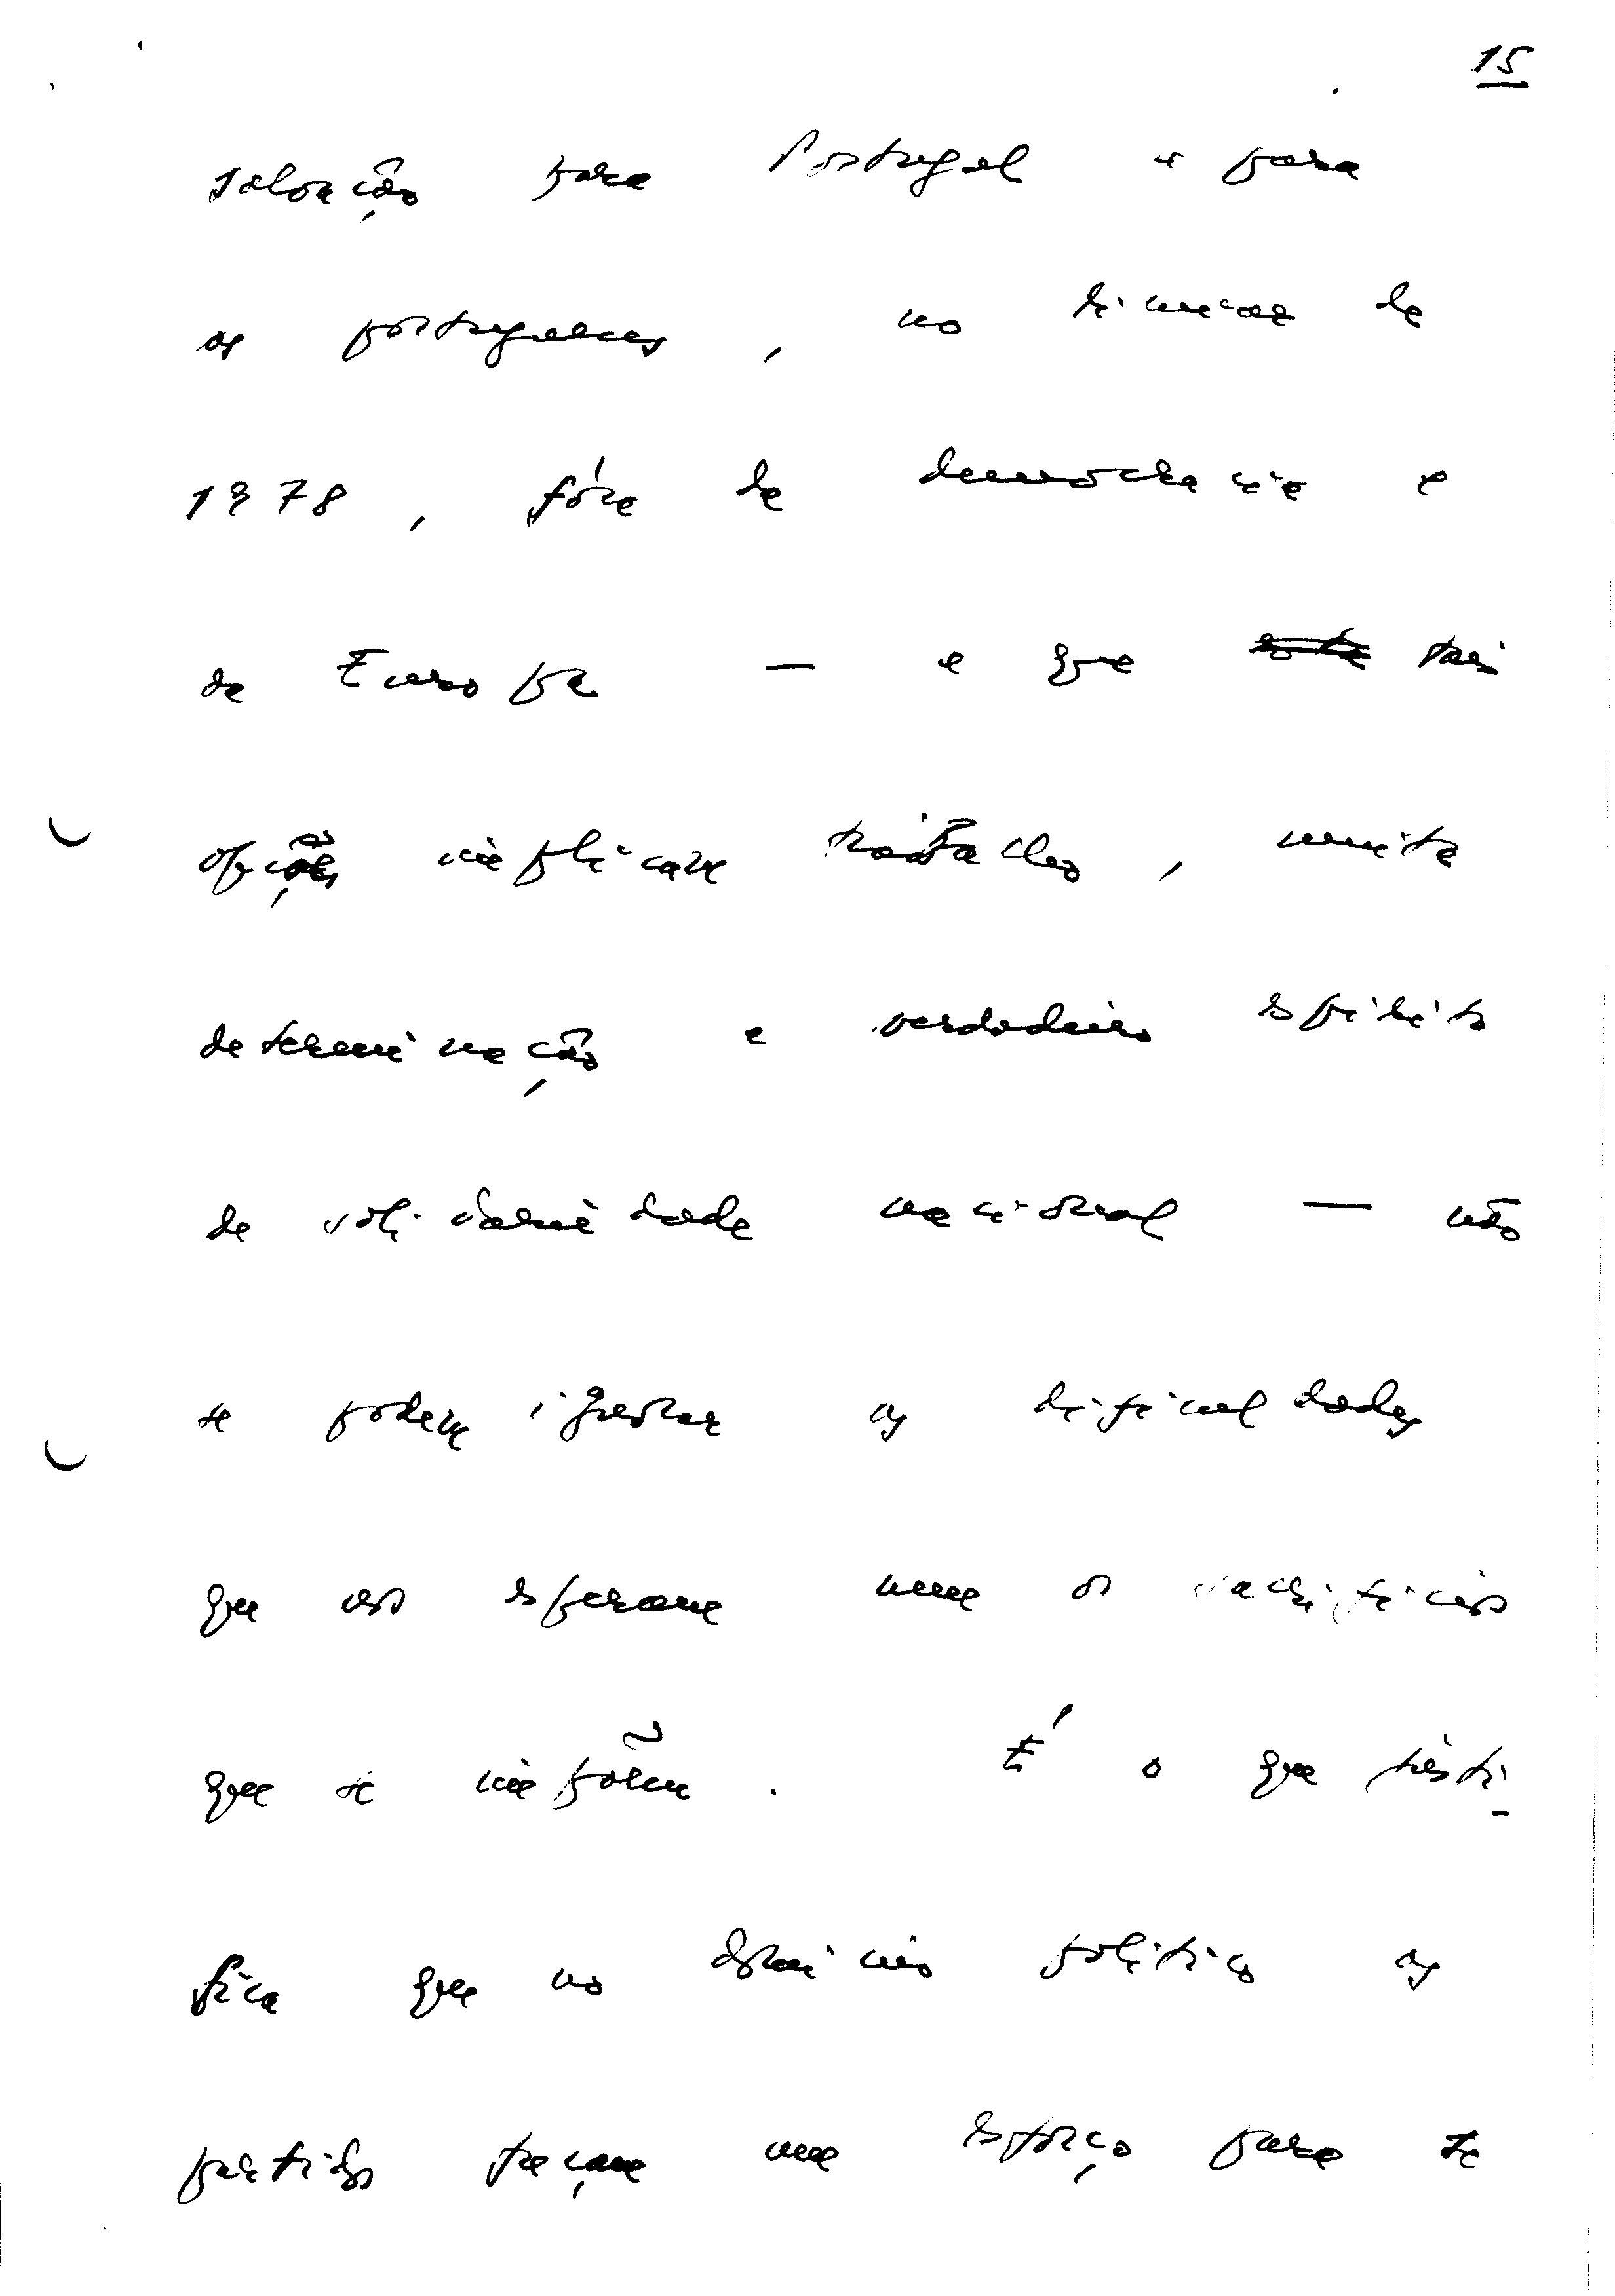 15
salvação para Portugal e para
os portugueses, no limiar de
1978, fóra da democracia e
da Europa — e que tais
opções implicam trabalho, muita
determinação e verdadeiro espírito
de solidariedade nacional — não
se podem ignorar as dificuldades
que nos esperam nem os sacrifícios
que se impõem. É o que justi-
fica que no domínio político os
partidos façam um esforço para se